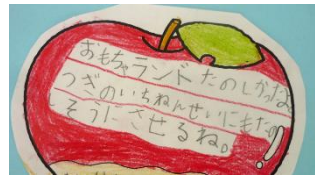 おもちゃランドたのしかったな
つぎのいちねんせいにもたの
しそうにさせるね。